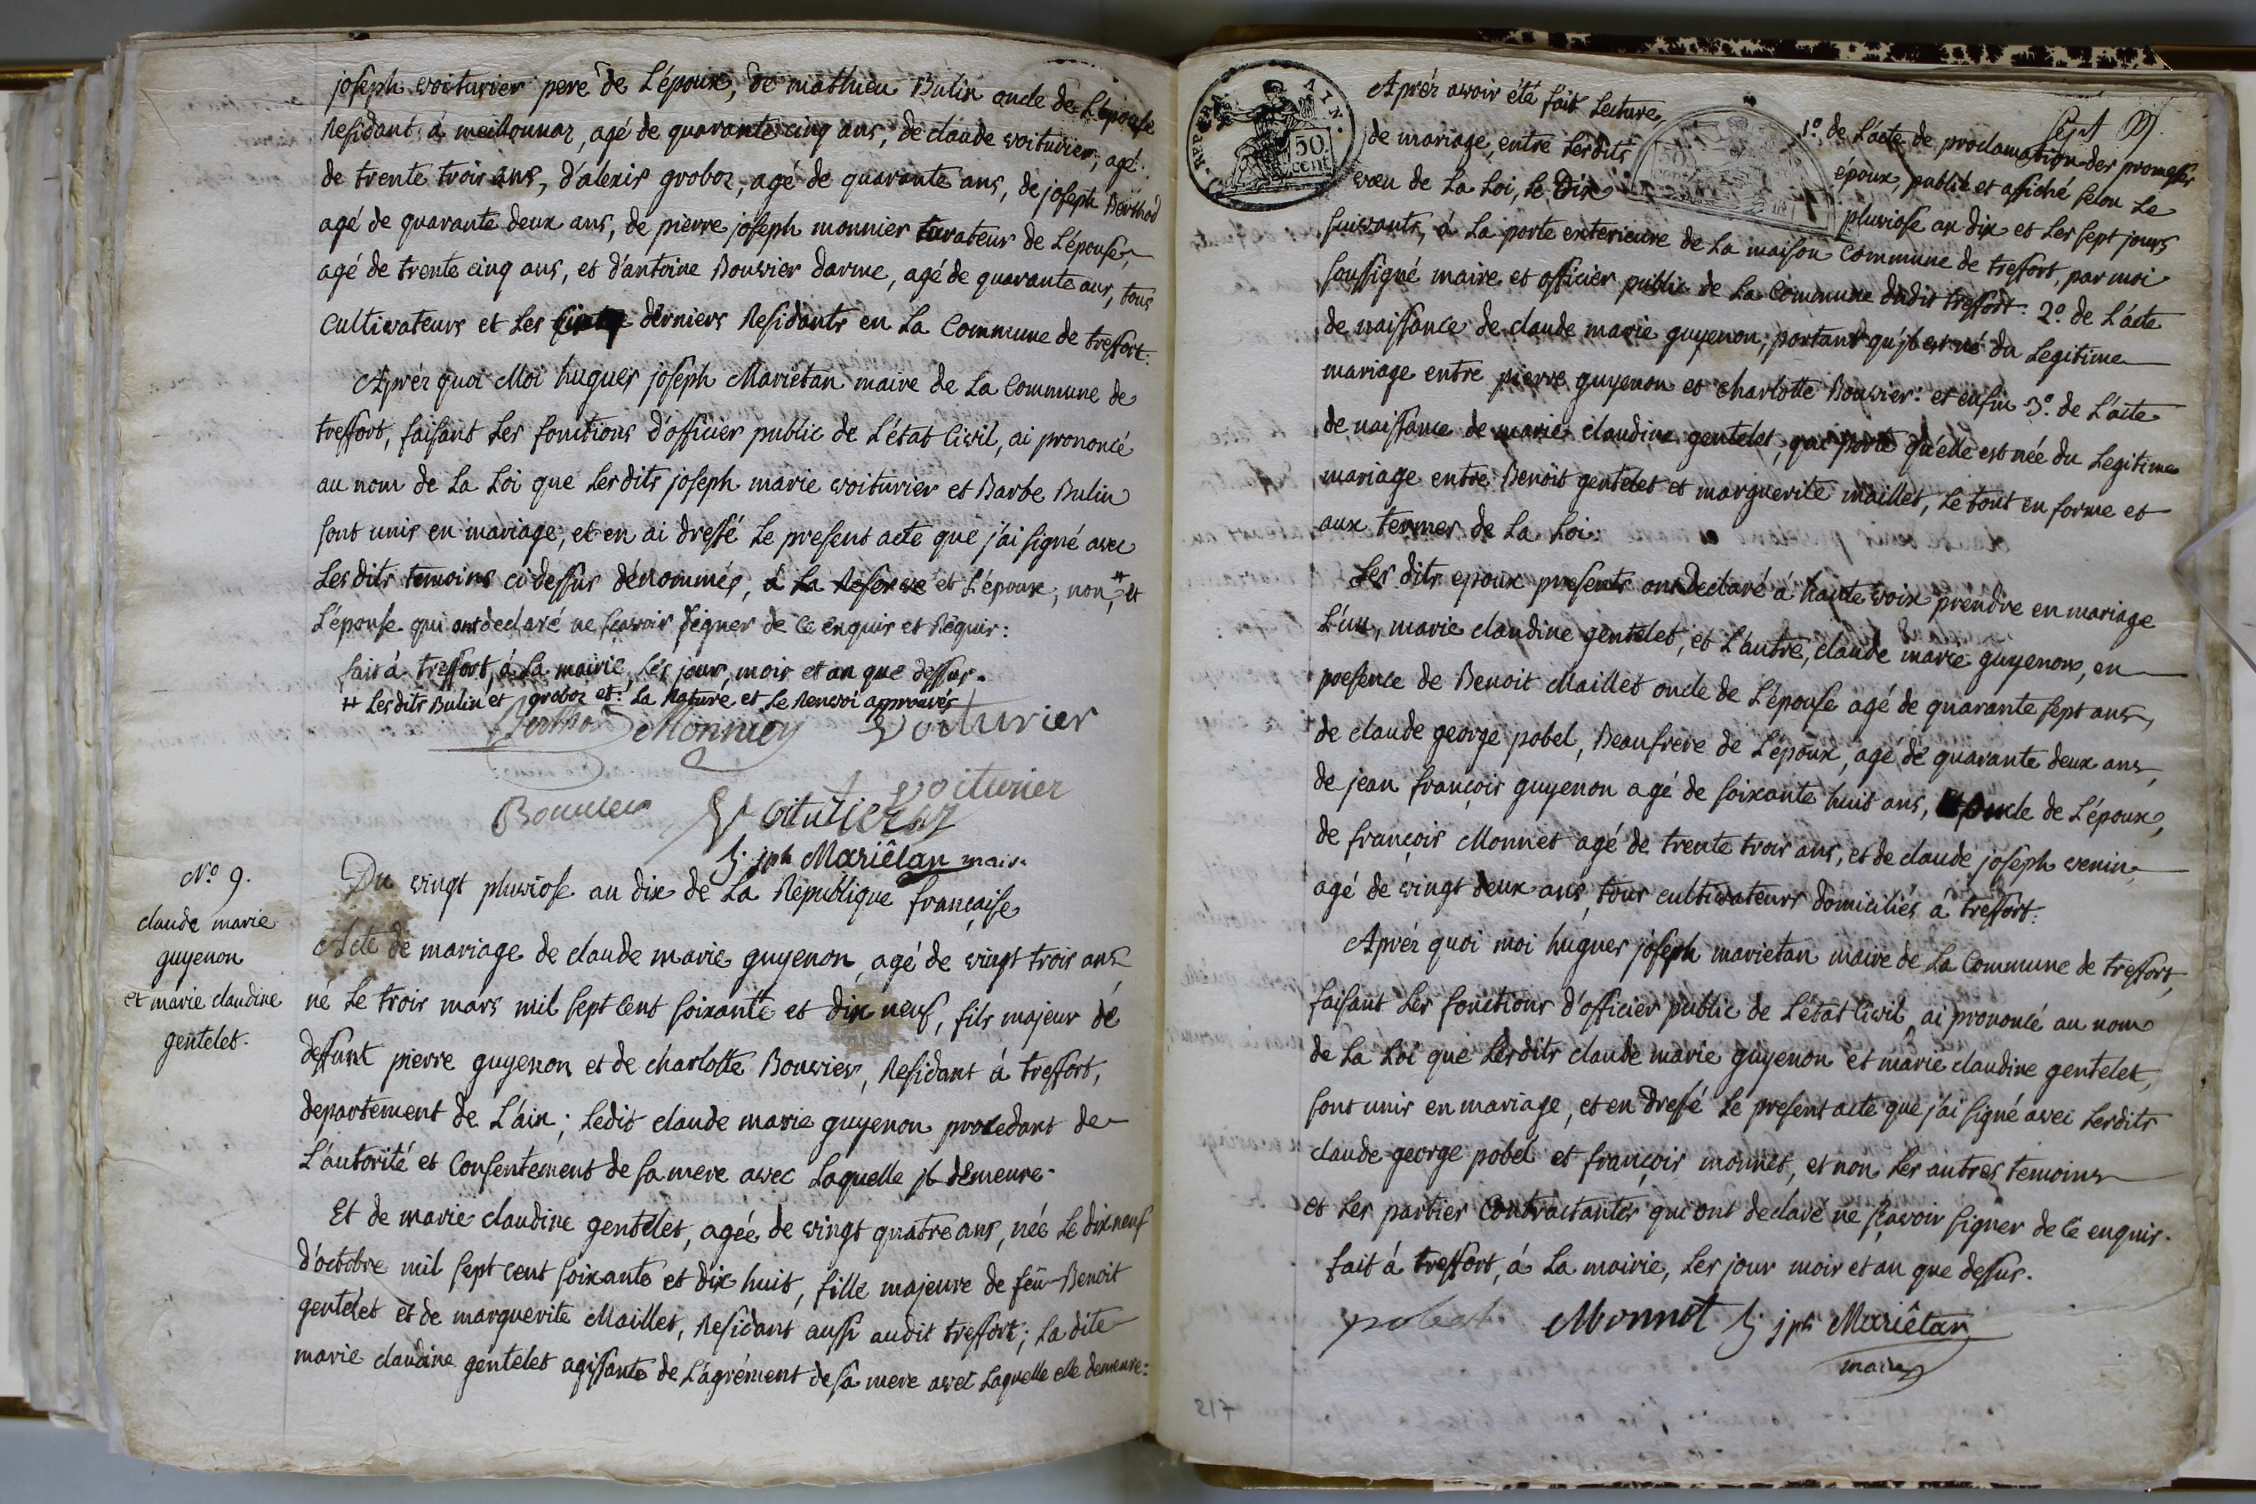 joseph voiturier pere de L'époux, de mathieu Bulin oncle de L'épouse
Residant à meillonnaz, agé de quarante cinq ans, de claude voiturier, agé
de trente trois ans, d'alexis groboz, agé de quarante ans, de joseph Berthod
agé de quarante deux ans, de pierre joseph monnier curateur de L'épouse,
agé de trente cinq ans, et d'antoine Bouvier darme, agé de quarante ans, tous
Cultivateurs et Les derniers Residants en La Commune de treffort.
Aprèz quoi Moi hugues joseph Mariétan maire de La Commune de
treffort, faisant Les fonctions d'officier public de L'état Civil, ai prononcé
au nom de La Loi que Lesdits joseph marie voiturier et Barbe Bulin
sont unis en mariage; et en ai dressé Le present acte que j'ai signé avec
Lesdits temoins ci dessus dénommés, à La Reserve et L'époux, non, # et
L'épouse qui ont declaré ne sçavoir signer de ce enquis et Réquis:
fait à treffort, à La mairie, Les jour, mois et an que dessus.
# Lesdits Bulin et groboz et: La Rature et Le Renvoi approuvés
Berthod Monnier Voiturier
voiturier
Bouvier Voiturier
h; jph Mariêtan maire
N.º 9.
claude marie
guyenon
et marie claudine
gentelet.
Du vingt pluviose an dix de La Republique française
Acte de mariage de claude marie guyenon, agé de vingt trois ans
né Le trois mars mil sept Cent soixante et dix neuf, fils majeur de
deffunt pierre guyenon et de charlotte Bouvier, Residant à treffort,
departement de L'ain; Ledit claude marie guyenon procedant de
L'autorité et Consentement de sa mere avec Laquelle jl demeure.
Et de marie claudine gentelet, agée de vingt quatre ans, née Le dix neuf
d'octobre mil sept cent soixante et dix huit, fille majeure de feu Benoit
gentelet et de marguerite Maillet, Residant aussi audit treffort; La dite
marie claudine gentelet agissante de L'agrément de sa mere avec Laquelle elle demeure:
REP. FRA. AIN.
50
cent
sept
Aprèz avoir été fait Lecture 1.º de L'acte de proclamation des promesses
de mariage, entre Lesdits époux, publié et affiché selon Le
voeu de La Loi, Le Dix pluviose an dix et Les sept jours
suivants, à La porte exterieure de La maison Commune de treffort, par moi
soussigné maire et officier public de La Commune dudit treffort. 2.º de L'acte
de naissance de claude marie guyenon, portant qu'jl est né du Legitime
mariage entre pierre guyenon et charlotte Bouvier: et enfin 3.º de L'acte
de naissance de marie claudine gentelet, qui porte qu'elle est née du Legitime
mariage entre Benoit gentelet et marguerite maillet, Le tout en forme et
aux termes de La Loi.
Les dits epoux presents ont declaré à haute voix prendre en mariage
L'un, marie claudine gentelet, et L'autre, claude marie guyenon, en
presence de Benoit Maillet oncle de L'épouse agé de quarante sept ans,
de claude george pobel, Beaufrere de L'époux, agé de quarante deux ans,
de jean françois guyenon agé de soixante huit ans, oncle de L'époux,
de françois Monnet agé de trente trois ans, et de claude joseph venin
agé de vingt deux ans, tous cultivateurs domiciliés à treffort.
Aprèz quoi moi hugues joseph mariétan maire de La Commune de treffort,
faisant Les fonctions d'officier public de L'état Civil, ai prononcé au nom
de La Loi que Lesdits claude marie guyenon et marie claudine gentelet,
sont unis en mariage, et en dressé Le present acte que j'ai signé avec Lesdits
claude george pobel et françois monnet, et non Les autres temoins
et Les parties Contractantes qui ont declaré ne sçavoir signer de ce enquis.
fait à treffort, à La mairie, Les jour mois et an que dessus.
pobel Monnet h; jph Mariêtan
maire
217